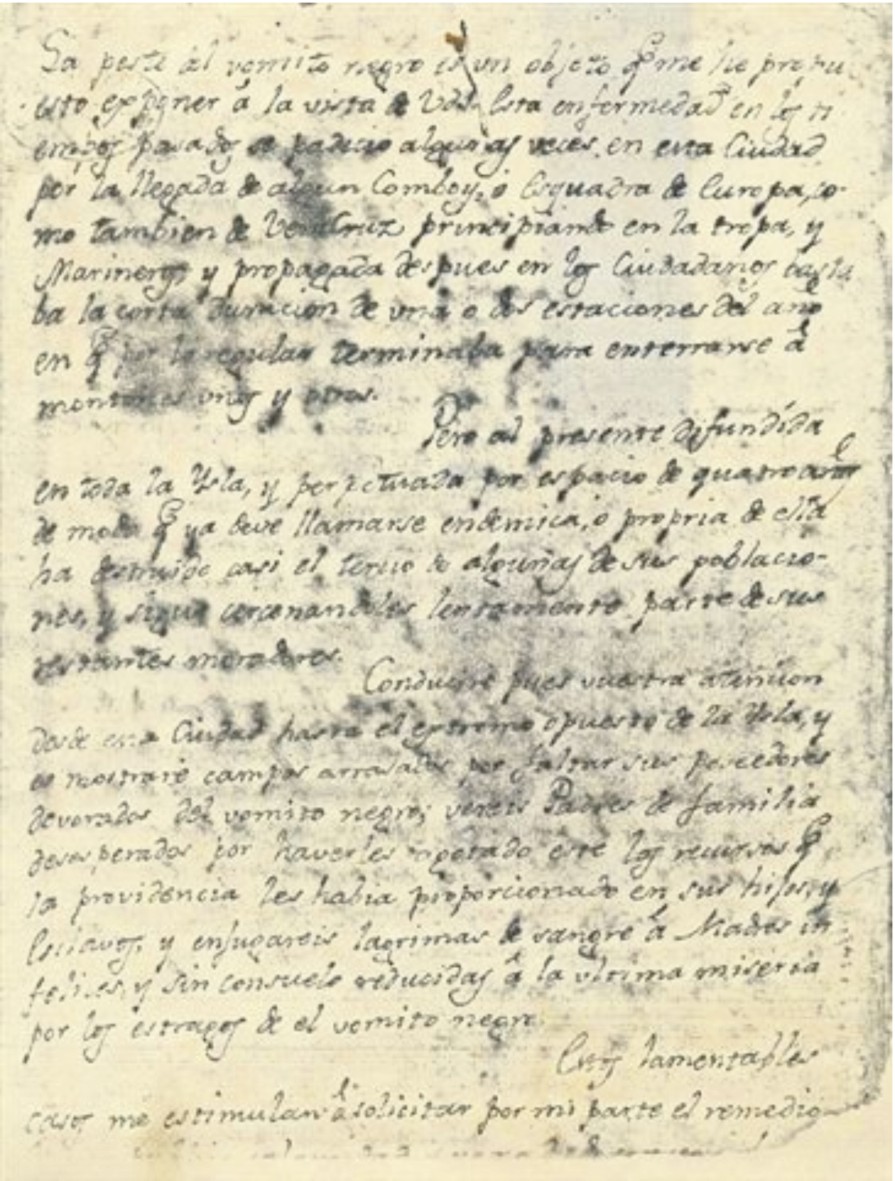 La peste al vomito negro es un objeto q.e me he propu
esto exponer â la vista de Vds. Esta enfermedad en los ti
empos pasados se padicio algunas veces en esta Ciudad
por la llegada de algun Comboy, ò Esquadra de Europa, co-
mo tambien de VeraCruz principiando en la tropa, y
Marineros, y propagada despues en los Ciudadanos basta
ba la corta duracion de una o dos estaciones del año
en q.e por lo regular terminaba para enterrarse â
montones unos y otros.
Pero al presente difundida
en toda la Ysla, y perpetuada por espacio de quatro años
de modo q.e ya deve llamarse endemica, o propria de ella
ha destruido casi el tercio de algunas de sus poblacio-
nes, y sigue cercenandoles lentamente parte de sus
restantes moradores.
Conducire pues vuestra atencion
desde esta Ciudad hasta el extremo opuesto de la Ysla, y
os mostraré campos arrasados por faltar sus poseedores
devorados del vomito negro; vereis Padres de familia
desesperados por haverles agotado este los recursos q.e
la providencia les habia proporcionado en sus hijos, y
Esclavos, y enjugareis lagrimas de sangre â Madres in
felices, y sin consuelo reducidas â la ultima miseria
por los estragos de el vomito negro.
Estos lamentables
casos me estimulan â solicitar por mi parte el remedio